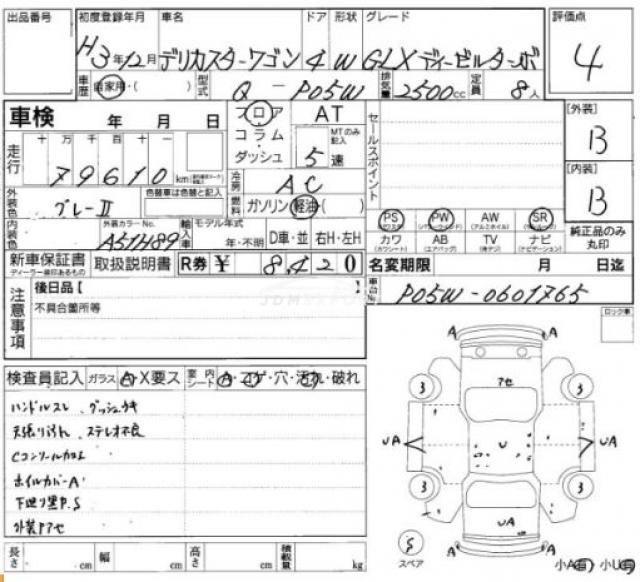 出品番号 初度登録年月 車名 ドア 形状 グレード 評価点
H3年12月 デリカスターワゴン 4 W GLXディーゼルターボ 4
車歴 自家用・( ) 型式 Q－P05W 排気量 2500cc 定員 8人
車検 年 月 日 フロア AT
コラム
ダッシュ MTのみ記入 5 速
セールスポイント
[外装] B
走行 十 万 千 百 十 一
79610 km
冷房 AC
[内装] B
外装色 グレーII 色替車は色替と記入
燃料 ガソリン・軽油( )
内装色 外装カラーNo. A51H89 輸入車 モデル年式 年・不明 D車・並 右H・左H
PS PW AW SR
(パワステ) (パワーウィンド) (アルミホイル) (サンルーフ)
カワ AB TV ナビ
(カワシート) (エアバッグ) (テレビ) (ナビゲーション)
純正品のみ丸印
新車保証書 取扱説明書 R券 ¥ 8,420
ディーラー車印あるもの
名変期限 月 日迄
注意事項 後日品 [ ]
不具合箇所等
車台No. P05W-0601765
ロック車
検査員記入 ガラス A・X要ス 室内シート A・コゲ・穴・汚れ・破れ
ハンドルスレ、ダッシュウキ
天張り汚れ、ステレオ不良
Cコンソールカエ
ホイルカバーA
下廻り黒P.S
外装Pアセ
A A
アセ
3 3
UA U UA
3 3
UA
S A A
スペア
小A有 小U有
長さ cm 幅 cm 高さ cm 積載量 kg